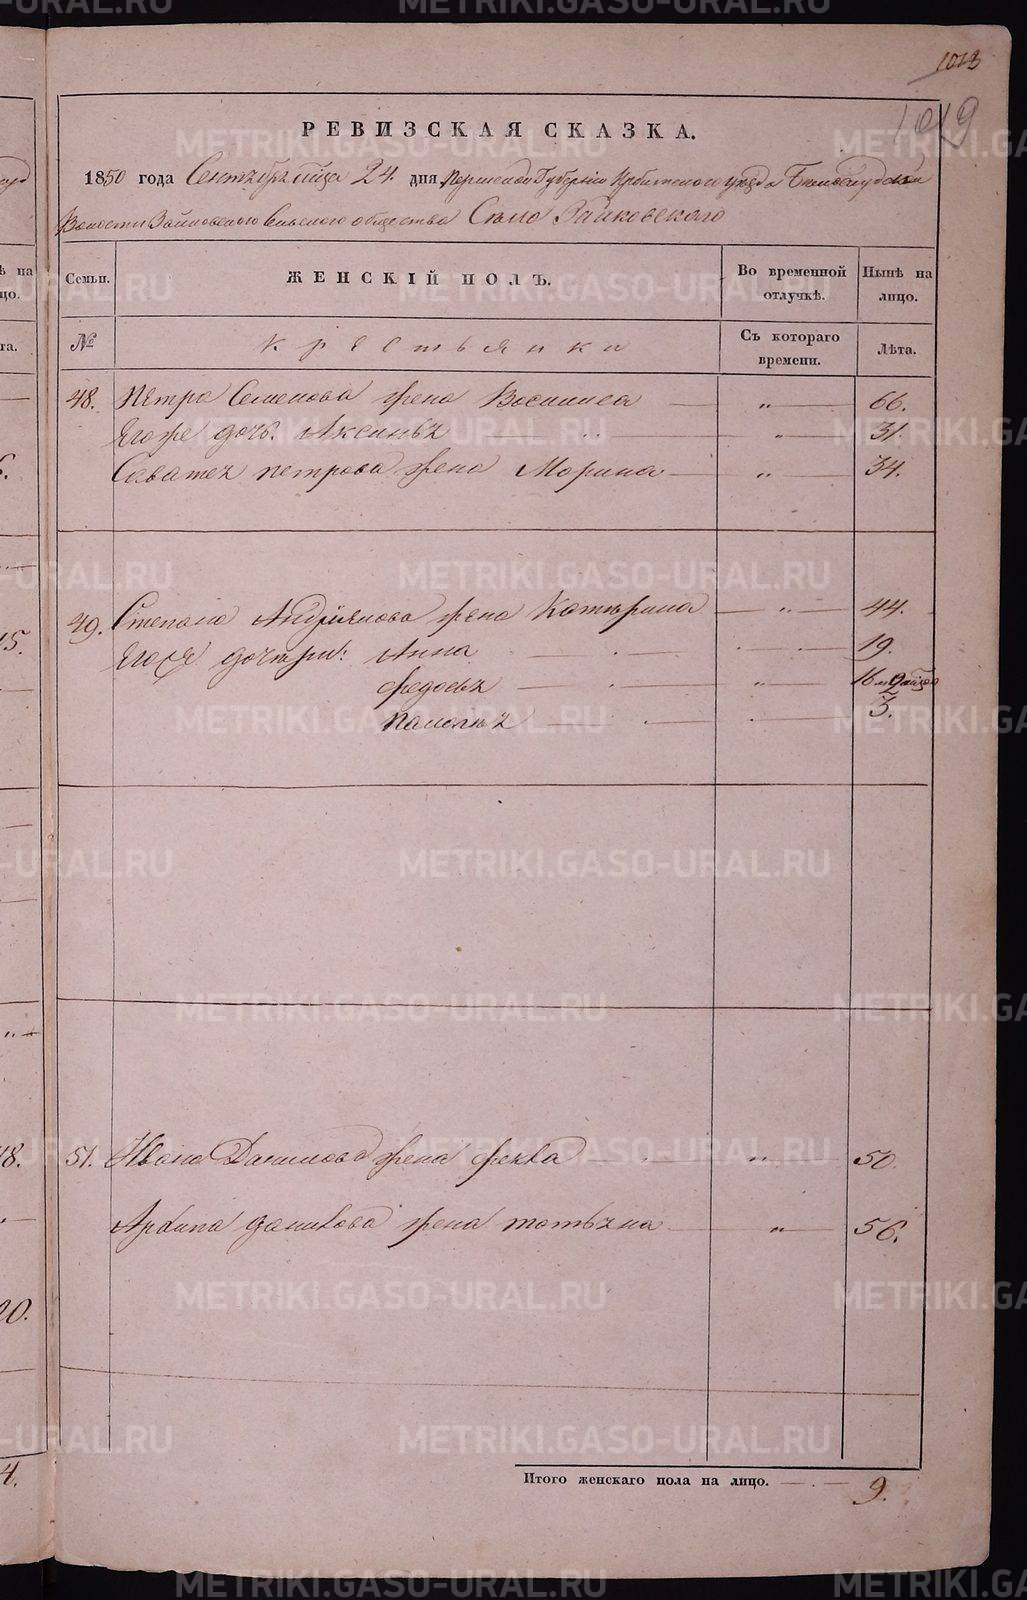 1013
1019
РЕВИЗСКАЯ СКАЗКА.
1850 года Сентября мца 24. дня Пермской Губернии Ирбитского уезда
Волости сельского общества Село
Семьи. ЖЕНСКІЙ ПОЛЪ. Во временной отлучкѣ. Нынѣ на лицо.
№ Крестьянки Съ котораго времени. Лѣта.
48. Петра Семенова жена Василиса — „ — 66.
Егоже дочь. Аксинья — „ — 31.
Саватея петрова жена Марина — „ — 34.
49. Степана Андріянова жена Катерина — „ — 44.
Егоже дочери: Анна — 19.
федосья — „ — 16
палагѣя — 3.
51. Ивана Данилова жена фекла — „ — 50.
Архипа данилова жена татьяна — „ — 56.
Итого женскаго пола на лицо. — 9.
METRIKI.GASO-URAL.RU